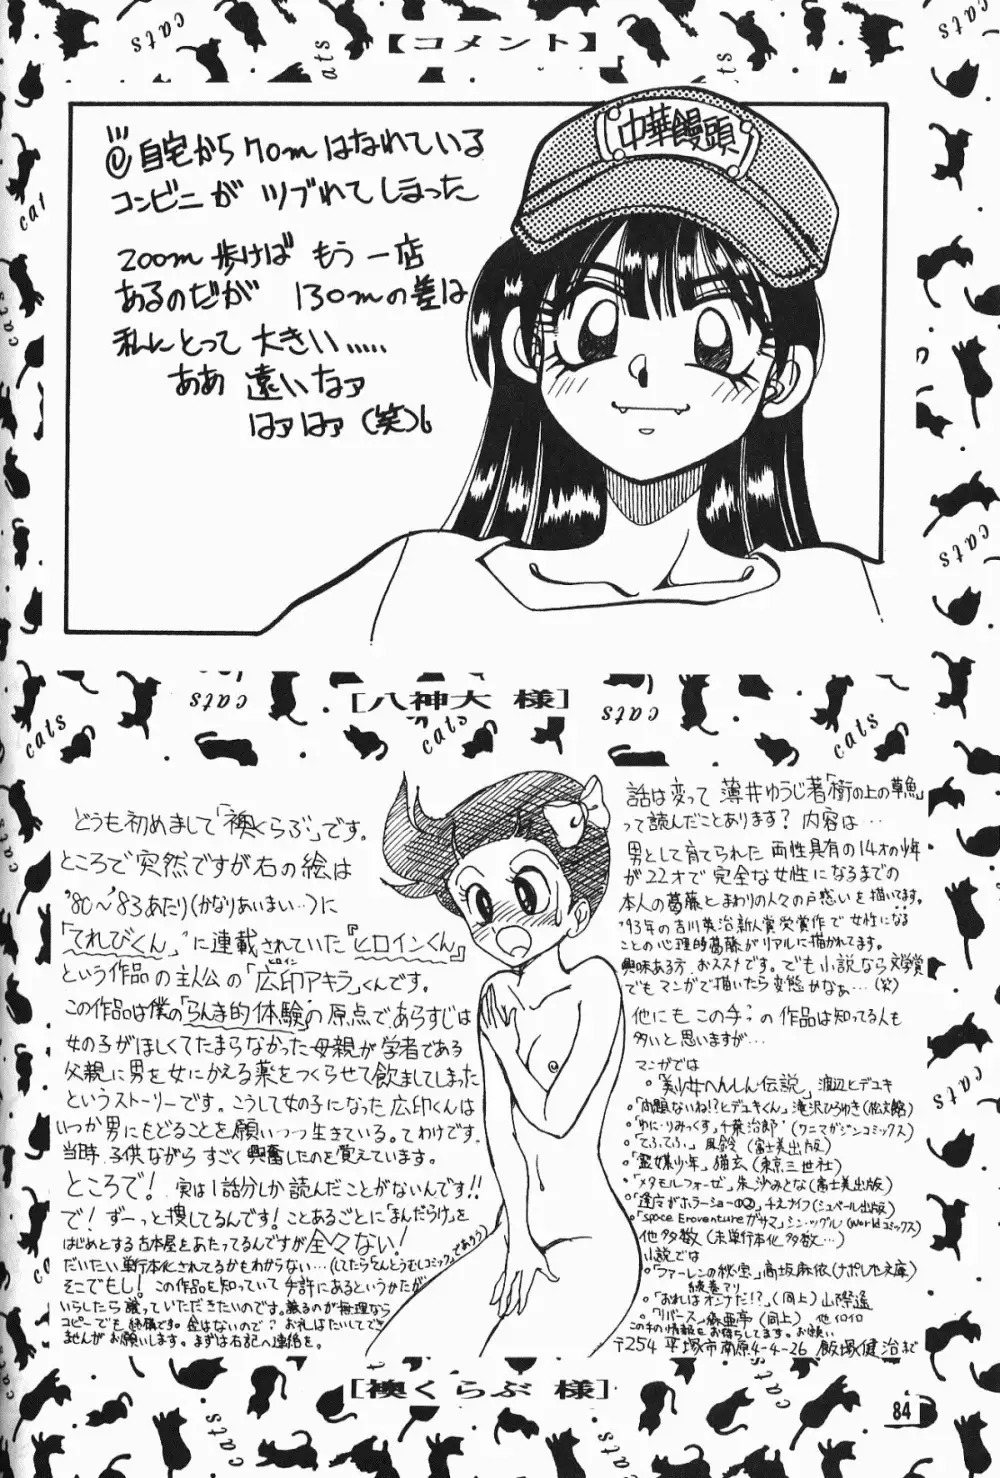 【コメント】
自宅から70mはなれている
コンビニが ツブれてしまった
200m歩けば もう一店
あるのだが 130mの差は
私にとって 大きい.....
ああ 遠いなァ
はァはァ(笑)
中華饅頭
[八神大 様]
どうも初めまして「襖くらぶ」です。
ところで突然ですが右の絵は
'80〜'83あたり(かなりあいまい…)に
「てれびくん」に連載されていた『ヒロインくん』
という作品の主人公の「広印アキラ」くんです。
ヒロイン
この作品は僕の「らんま的体験」の原点で、あらすじは
女の子がほしくてたまらなかった母親が学者である
父親に男を女にかえる薬をつくらせて飲ましてしまった
というストーリーです。こうして女の子になった広印くんは
いつか男にもどることを願いつつ生きている。てわけです。
当時、子供ながらすごく興奮したのを覚えています。
ところで! 実は1話分しか読んだことがないんです!!
で!ずーっと捜してるんです!ことあるごとに「まんだらけ」を
はじめとする古本屋をあたってるんですが全々ない!
だいたい単行本化されてるかもわからない…(してたらてんとうむしコミックスであろう)
そこでもし!この作品を知っていて手許にあるというかたが
いらしたら譲っていただきたいのです。譲るのが無理なら
コピーでも結構です。金はないので?お礼はたいしてでき
ませんがお願いします。まずは右記へ連絡を。
話は変って 薄井ゆうじ著「樹の上の草魚」
って読んだことあります?内容は…
男として育てられた 両性具有の14才の少年
が22才で完全な女性になるまでの
本人の葛藤とまわりの人々の戸惑いを描いてます。
'93年の吉川英治新人賞受賞作で女性になる
ことの心理的葛藤がリアルに描かれてます。
興味ある方、おススメです。でも小説なら文学賞
でもマンガで描いたら変態かなぁ…(笑)
他にもこの手の作品は知ってる人も
多いと思いますが…
マンガでは
「美少女へんしん伝説」渡辺ヒデユキ
「問題ないね!?ヒデユキくん」滝沢ひろゆき(松文館)
「ゆに・りみっくす」千葉治郎(ワニマガジンコミックス)
「てふてふ」風鈴(富士美出版)
「霊媒少年」猫玄(東京三世社)
「メタモルフォーゼ」朱沙みとな(富士美出版)
「逢魔がホラーショー①②」チェナイフ(シュベール出版)
「Space Eroventureガザマ」シン・ツグル(Worldコミックス)
他多数(未単行本化多数…)
小説では
「ファーレンの秘宝」高坂麻依(ナポレオン文庫)
続巻アリ
「おれはオンナだ!?」(同上)山際遥
「リバース」麻亜亭(同上) 他イロイロ
この手の情報をお待ちしてます。お願い
〒254 平塚市南原4-4-26 飯塚健治まで
[襖くらぶ 様]
84
cats